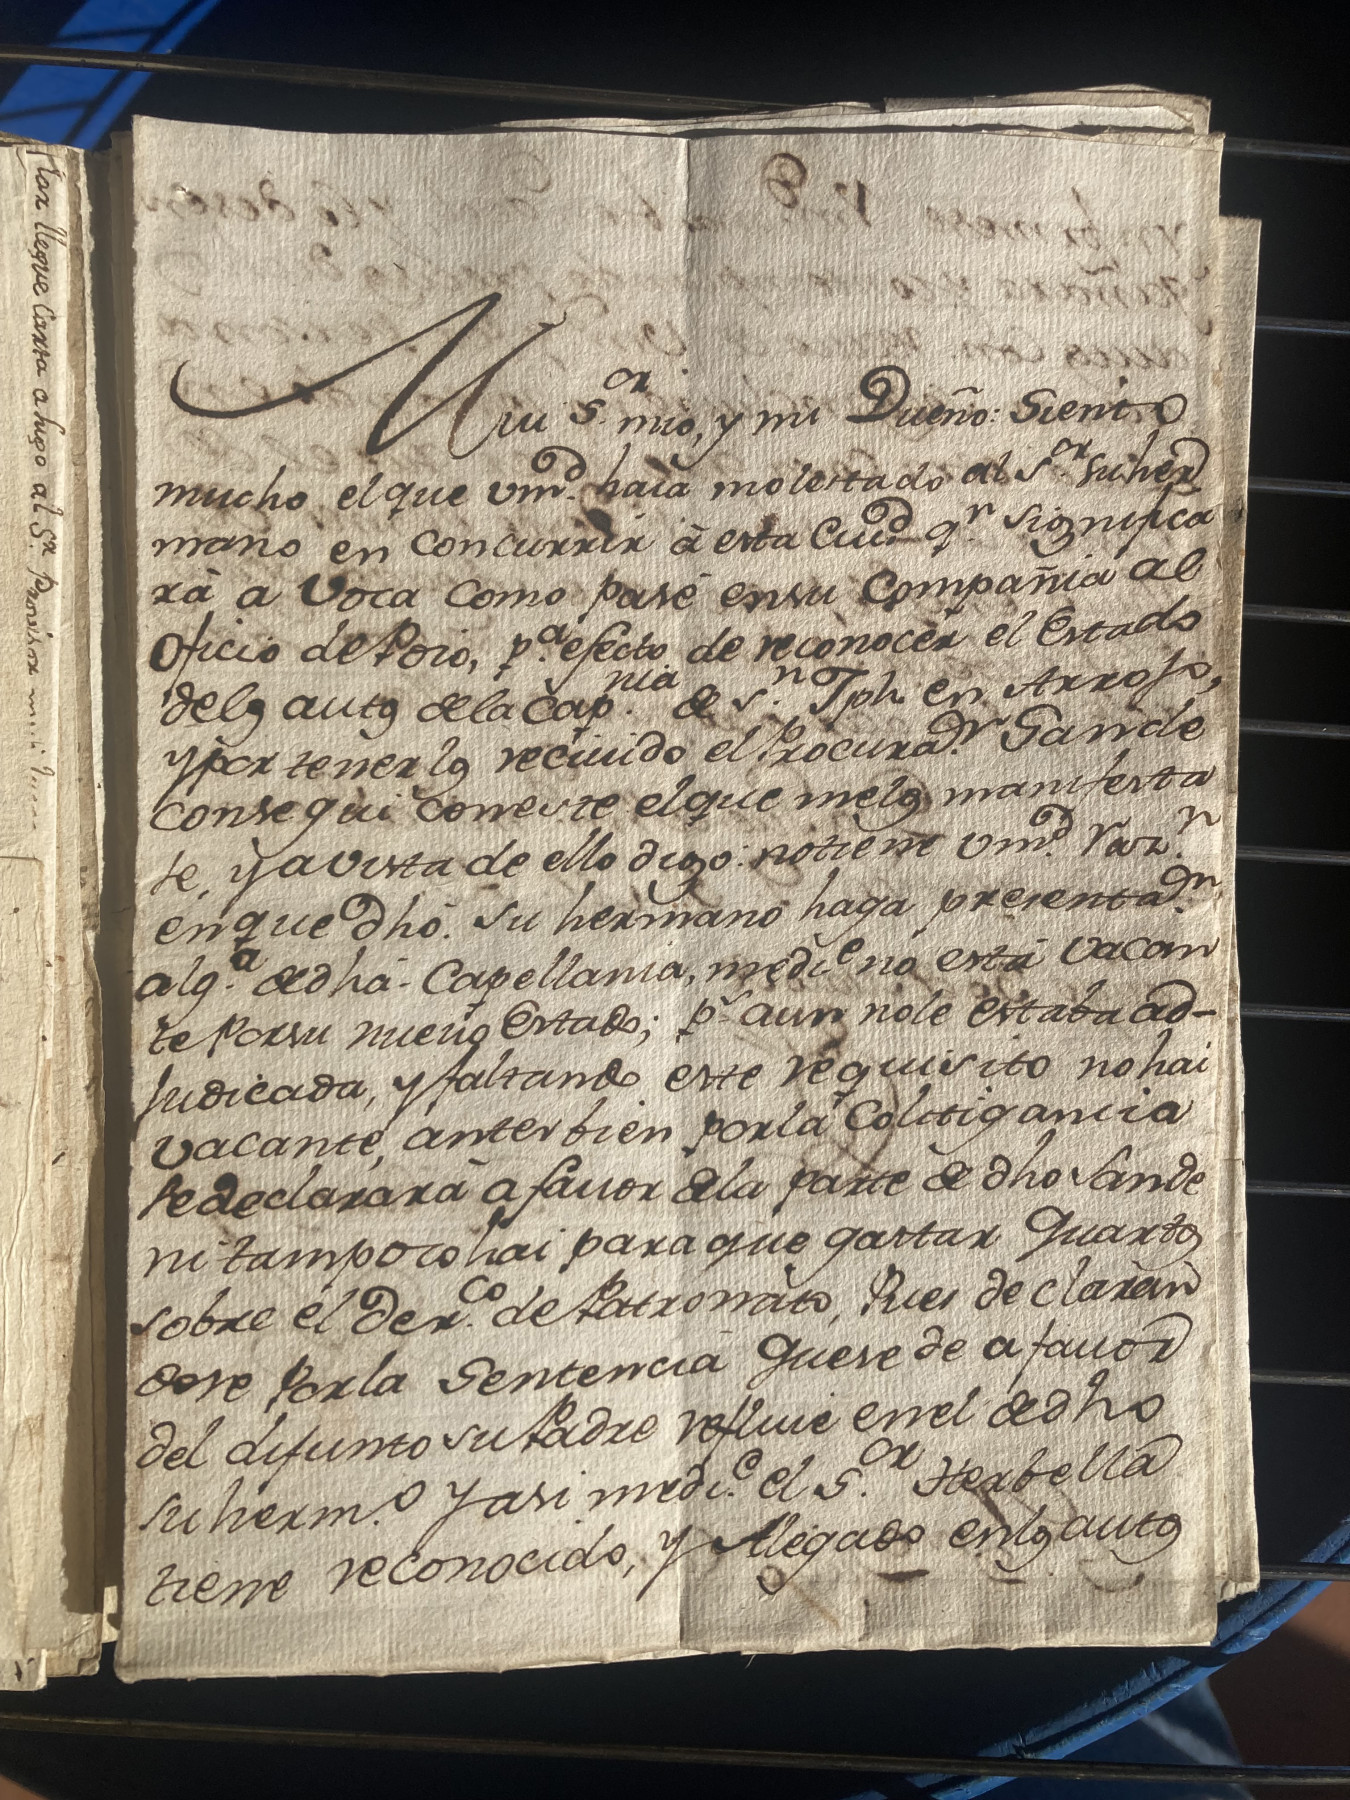 Mui S.or mio, y mi Dueño: Siento
mucho el que vmd. haia molestado al S.or su her
mano en Concurrir â esta Ciud q.n significa
rà a Voca como pasé en su Compañia al
Oficio de Poio, p.a efecto de reconocer el Estado
de los autos de la Cap.nia de S.n Jph en Arrojo,
y por tenerlos reciuido el Procurad.r Sande
Conseguí con este el que me los manifesta
se, y a vista de ello digo: no tiene vmd. raz.n
en que dhô. su hermano haga presentad.n
alg.a de dhâ. Capellania, medi.e no está vacan
te por su nueuo Estado; p.s aun no le estaba ad-
judicada, y faltando este requisito no hai
vacante, antes bien por la Colitigancia
se declararà a fauor de la parte de dho Sande
ni tampoco hai para que gastar quartos
sobre el Der.co de Patronato, Pues declaran
dose por la Sentencia quese de a fauor
del difunto su Padre refluie en el de dho
su herm.o Y asi medi.e el S.or Herbella
tiene reconocido, y Alegado en los autos
tar llegue Carta a hugo al S.r Provisor